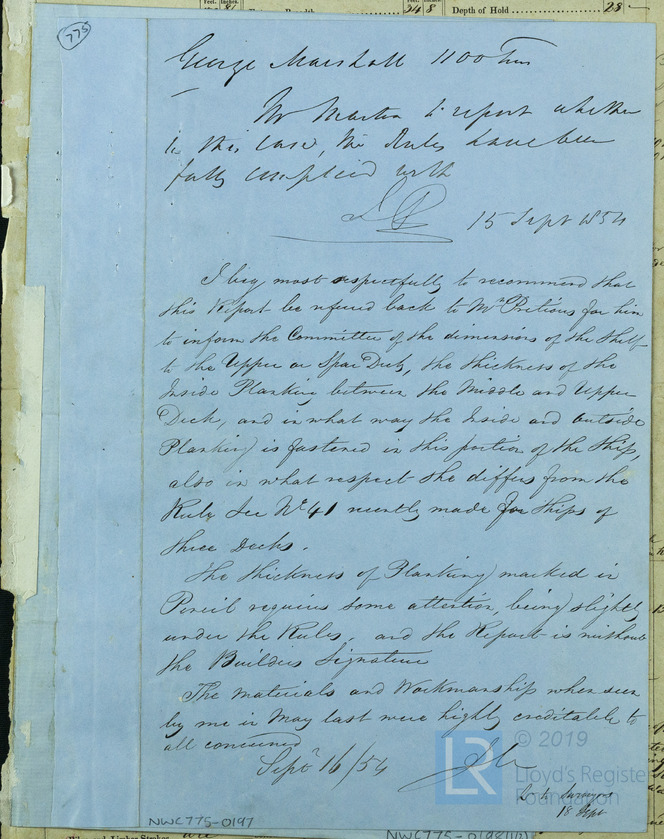 Feet. Inches.
Feet. Inches.
24 8
Depth of Hold
28
775
George Marshall 1100 Tons
Mr Martin to report whether
in this case, the Rules have been
fully complied with
15 Sept 1854
I beg most respectfully to recommend that
this Report be refered back to Mr Pretious for him
to inform the Committee of the dimensions of the Shelf
to the Upper or Spar Deck, the thickness of the
Inside Planking between the Middle and Upper
Deck, and in what way the Inside and outside
Planking is fastened in this portion of the Ship,
also in what respect she differs from the
Rule Sec No 41 recently made for Ships of
three Decks.
The thickness of Planking marked in
Pencil requires some attention, being slightly
under the Rules, and the Report is without
the Builders Signature
The materials and Workmanship when seen
by me in May last were highly creditable to
all concerned
Sept 16/54
18 Sept
© 2019
LR
Lloyd's Register
Foundation
NWC775-0197
NWC775-0198